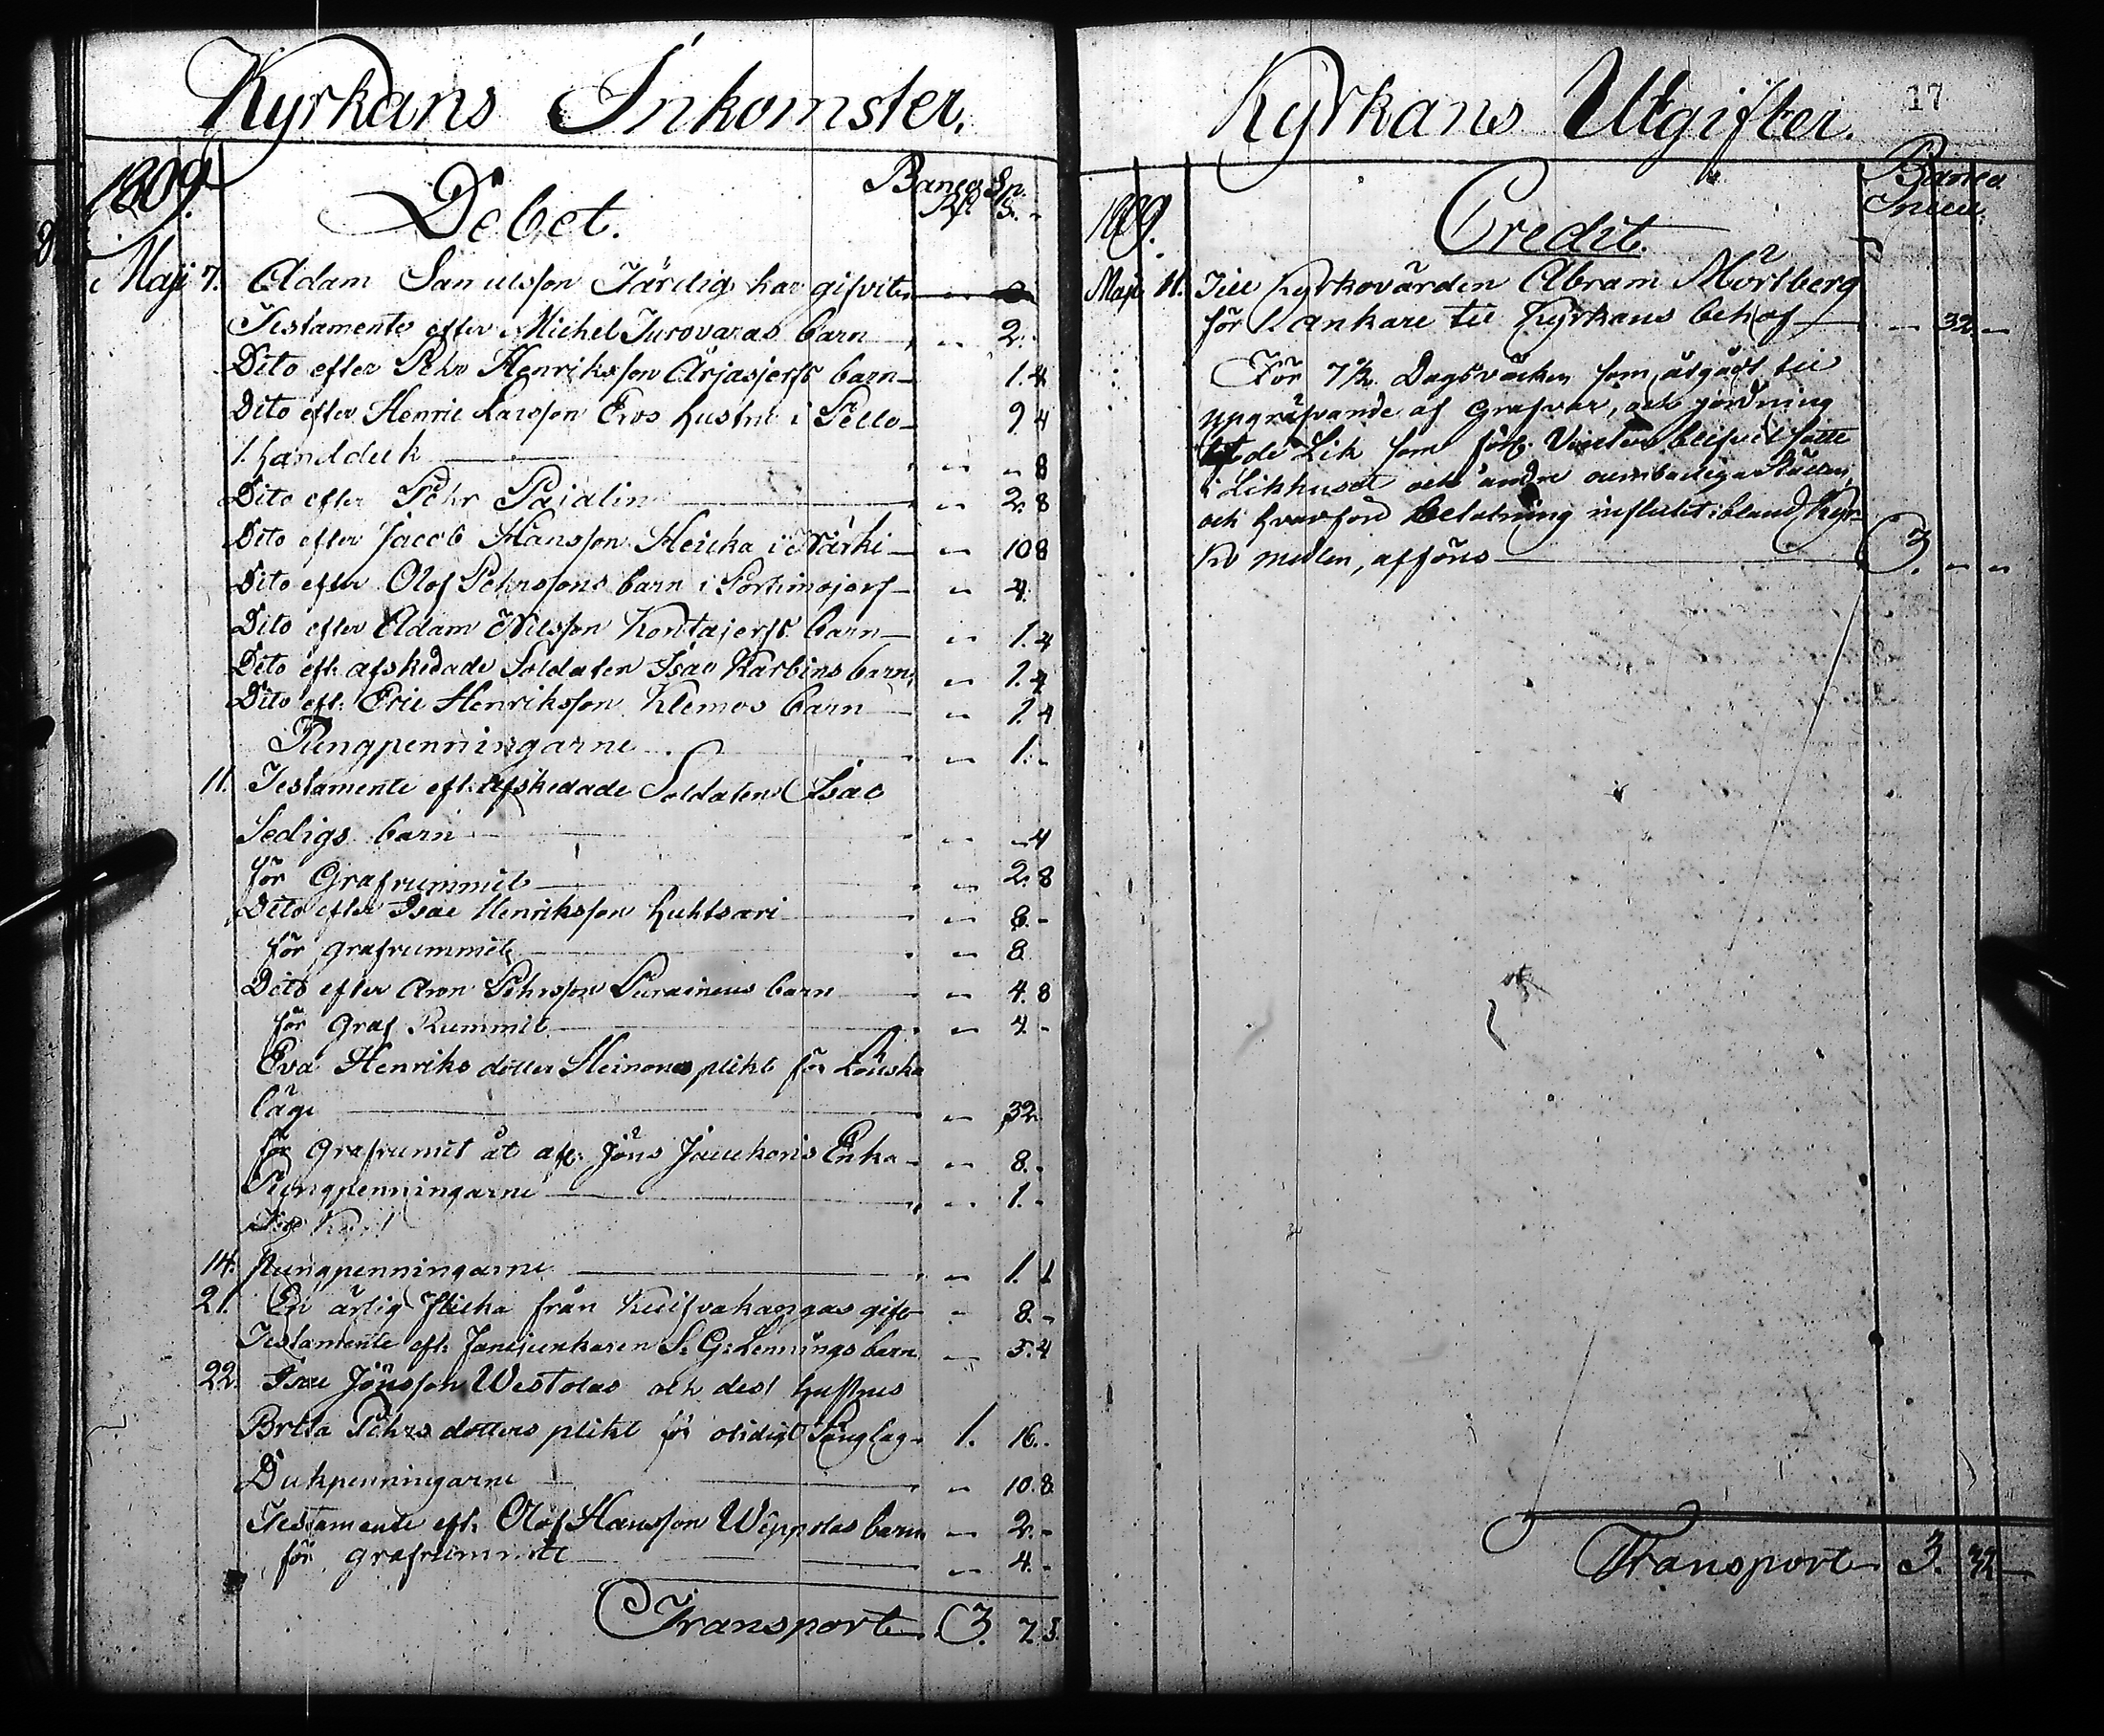 Kyrkans Inkomster.
1809.
Debet.
Banco Sp.
Rf. S.
Maji 7. Adam Samuelsson Järdig har gifvit
Testamente efter Michel Turovaras barn 2.
Dito efter Pehr Henriksson Ärjasjerfs barn 1. 4
Dito efter Henric Larsson Eros hustru i Pello
1. handduk 8
Dito efter Pehr Paidlin 2. 8
Dito efter Jacob Hansson Heicka i Närki 10 8
Dito efter Olof Pehrssons barn i Portimojerf 4.
Dito efter Adam Nilsson Kontajerfs barn 1. 4
Dito eft. afskedade Soldaten Isac Karbins barn 1. 4
Dito eft. Eric Henriksson Klemos barn 1. 4
Pungpenningarne 1. -
11. Testamente eft. afskedade Soldaten Isac
Sedigs barn 4
för Grafrummit 2. 8
Dito efter Isac Henriksson Luhtsari 8. -
för grafrummit 8
Dito efter Aron Pehrsson Puraineus barn 4. 8
för Graf Rummit 4. -
Eva Henriks dotter Heinonens plikt för Lönska
läge 32
för Grafrumit åt afl. Jöns Jauhonis Enka 8. -
Pungpenningarne 1. -
14. Pungpenningarne 1. 1
21. En ärlig flicka från Kuifvakangas gift 8. -
Testamente eft. Fanejunkaren S. G. Lennings barn 5. 4
22. Isac Jönsson Westolas och dess hustrus
Brita Pehrs dotters plikt för otidigt Sänglag 1. 16. -
Dukpenningarne 10. 8
Testamente eft. Olof Hansson Wippolas barn 2. -
för grafrummit 4. -
Transport 3. 7. 5.
Kyrkans Utgifter.
17
1809.
Credit.
Banco
Maji 11. Till Kyrkovärden Abram Mörtberg
för 1. ankare til Kyrkans behof 32 -
För 7½ Dagsvärken som åtgådt til
upgräfvande af grafvar, och jordning
de Lik som förl. Vinter blifvit satte
i Likhuset och andre Ställen,
och hvarföre Betalning influtit ibland Kyr-
ko medlen, afföres 3. - -
Transport 3. 32 -